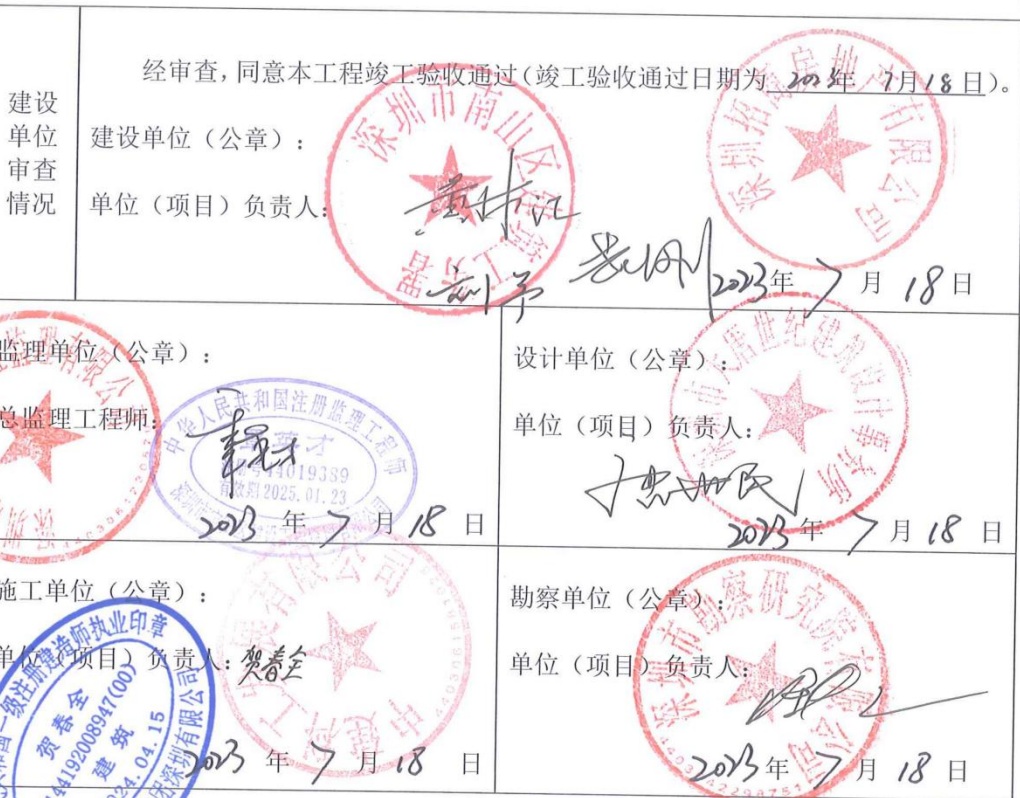 建设
单位
审查
情况
经审查,同意本工程竣工验收通过(竣工验收通过日期为 2023年 7月18日)。
建设单位(公章):
单位(项目)负责人:
深圳市南山区建筑工务署
深圳招商房地产有限公司
2023年 7 月 18 日
监理单位(公章):
总监理工程师:
监理有限公司
中华人民共和国注册监理工程师
44019389
有效期2025.01.23
2023 年 7 月 18 日
设计单位(公章):
单位(项目)负责人:
世纪建筑设计事务所
2023年 7 月 18 日
施工单位(公章):
单位(项目)负责人:贺春全
一级注册建造师执业印章
贺春全
44192008947(00)
建筑
24.04.15
深圳有限公司
2023 年 7 月 18 日
勘察单位(公章):
单位(项目)负责人:
深圳市勘察研究院有限公司
2023年 7 月 18 日